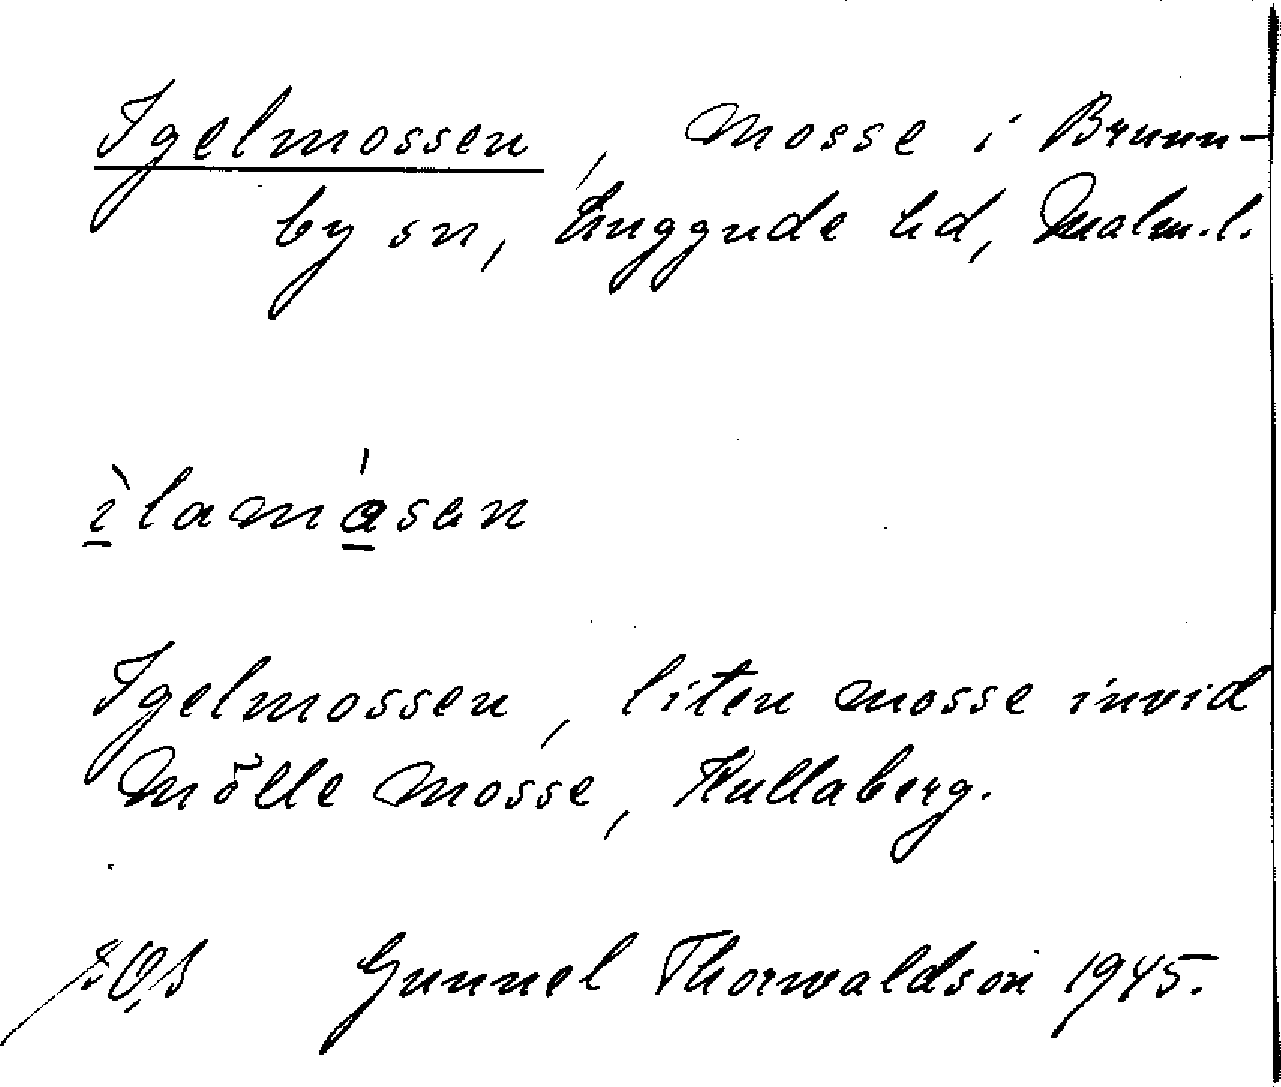 Igelmossen, mosse i Brunn-
by sn, Luggude hd, Malm.l.
ìlamásan
Igelmossen, liten mosse invid
Mölle mosse, Kullaberg.
Gunnel Thorwaldson 1945.